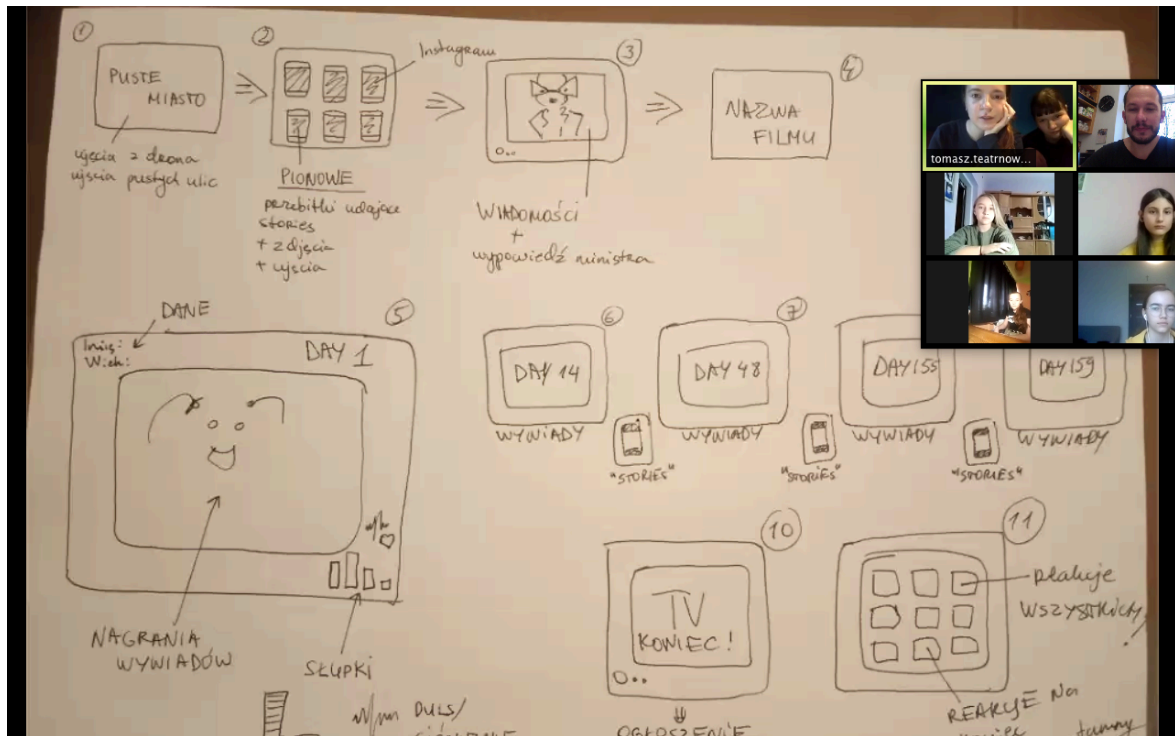 1
PUSTE
MIASTO
ujęcia z drona
ujęcia pustych ulic
2
Instagram
PIONOWE
przebitki udające
stories
+ zdjęcia
+ ujęcia
3
WIADOMOŚCI
+
wypowiedź ministra
4
NAZWA
FILMU
tomasz.teatrnow...
5
DANE
Imię:
Wiek:
DAY 1
NAGRANIA
WYWIADÓW
SŁUPKI
6
DAY 14
WYWIADY
"STORIES"
7
DAY 48
WYWIADY
"STORIES"
DAY 155
WYWIADY
"STORIES"
DAY 159
WYWIADY
10
TV
KONIEC!
OGŁOSZENIE
11
reakcje
WSZYSTKICH
REAKCJE NA
PULS/